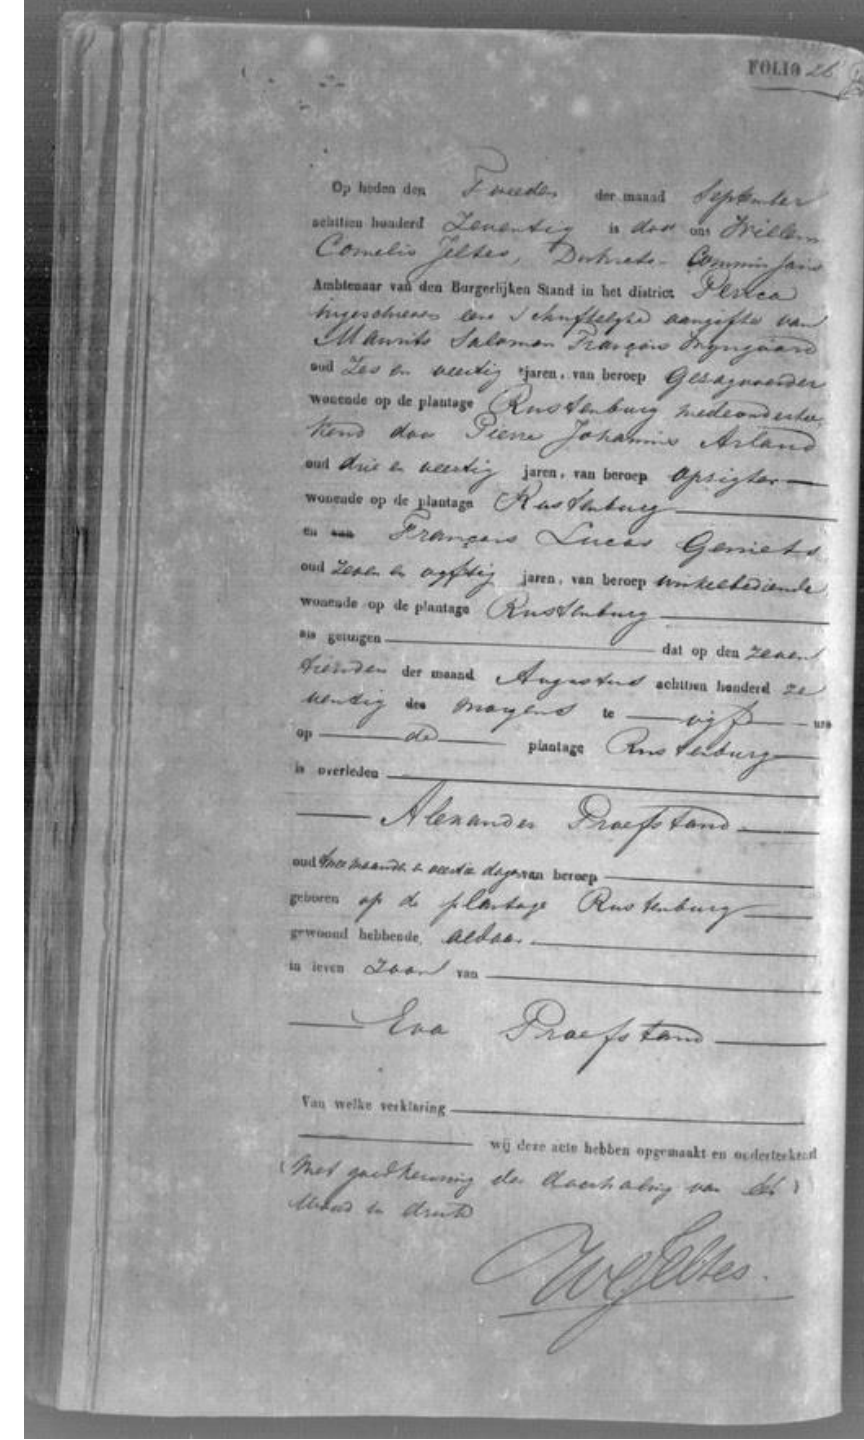 FOLIO 26
Op heden den Tweeden der maand September
achttien honderd Zeventig is door ons Willem
Cornelis Jeltes, Districts-Commissaris
Ambtenaar van den Burgerlijken Stand in het district Perica
ingeschreven eene schriftelyke aangifte van
Maurits Salomon François Wyngaard
oud Zes en veertig jaren, van beroep Gezagvoerder
wonende op de plantage Rustenburg medeonderte
kend door Pierre Johannis Arland
oud drie en veertig jaren, van beroep Opzigter
wonende op de plantage Rustenburg
en van François Lucas Geniets
oud Zeven en vyftig jaren, van beroep winkelbediende
wonende op de plantage Rustenburg
als getuigen dat op den zeven
tienden der maand Augustus achttien honderd ze
ventig des morgens te vyf ure
op de plantage Rustenburg
is overleden
Alexander Proefstand
oud twee maanden en veertien dagen van beroep
geboren op de plantage Rustenburg
gewoond hebbende, aldaar
in leven Zoon van
Eva Proefstand
Van welke verklaring
wij deze acte hebben opgemaakt en onderteekend
(Met goedkeuring der doorhaling van één
woord in druk)
WCJeltes.